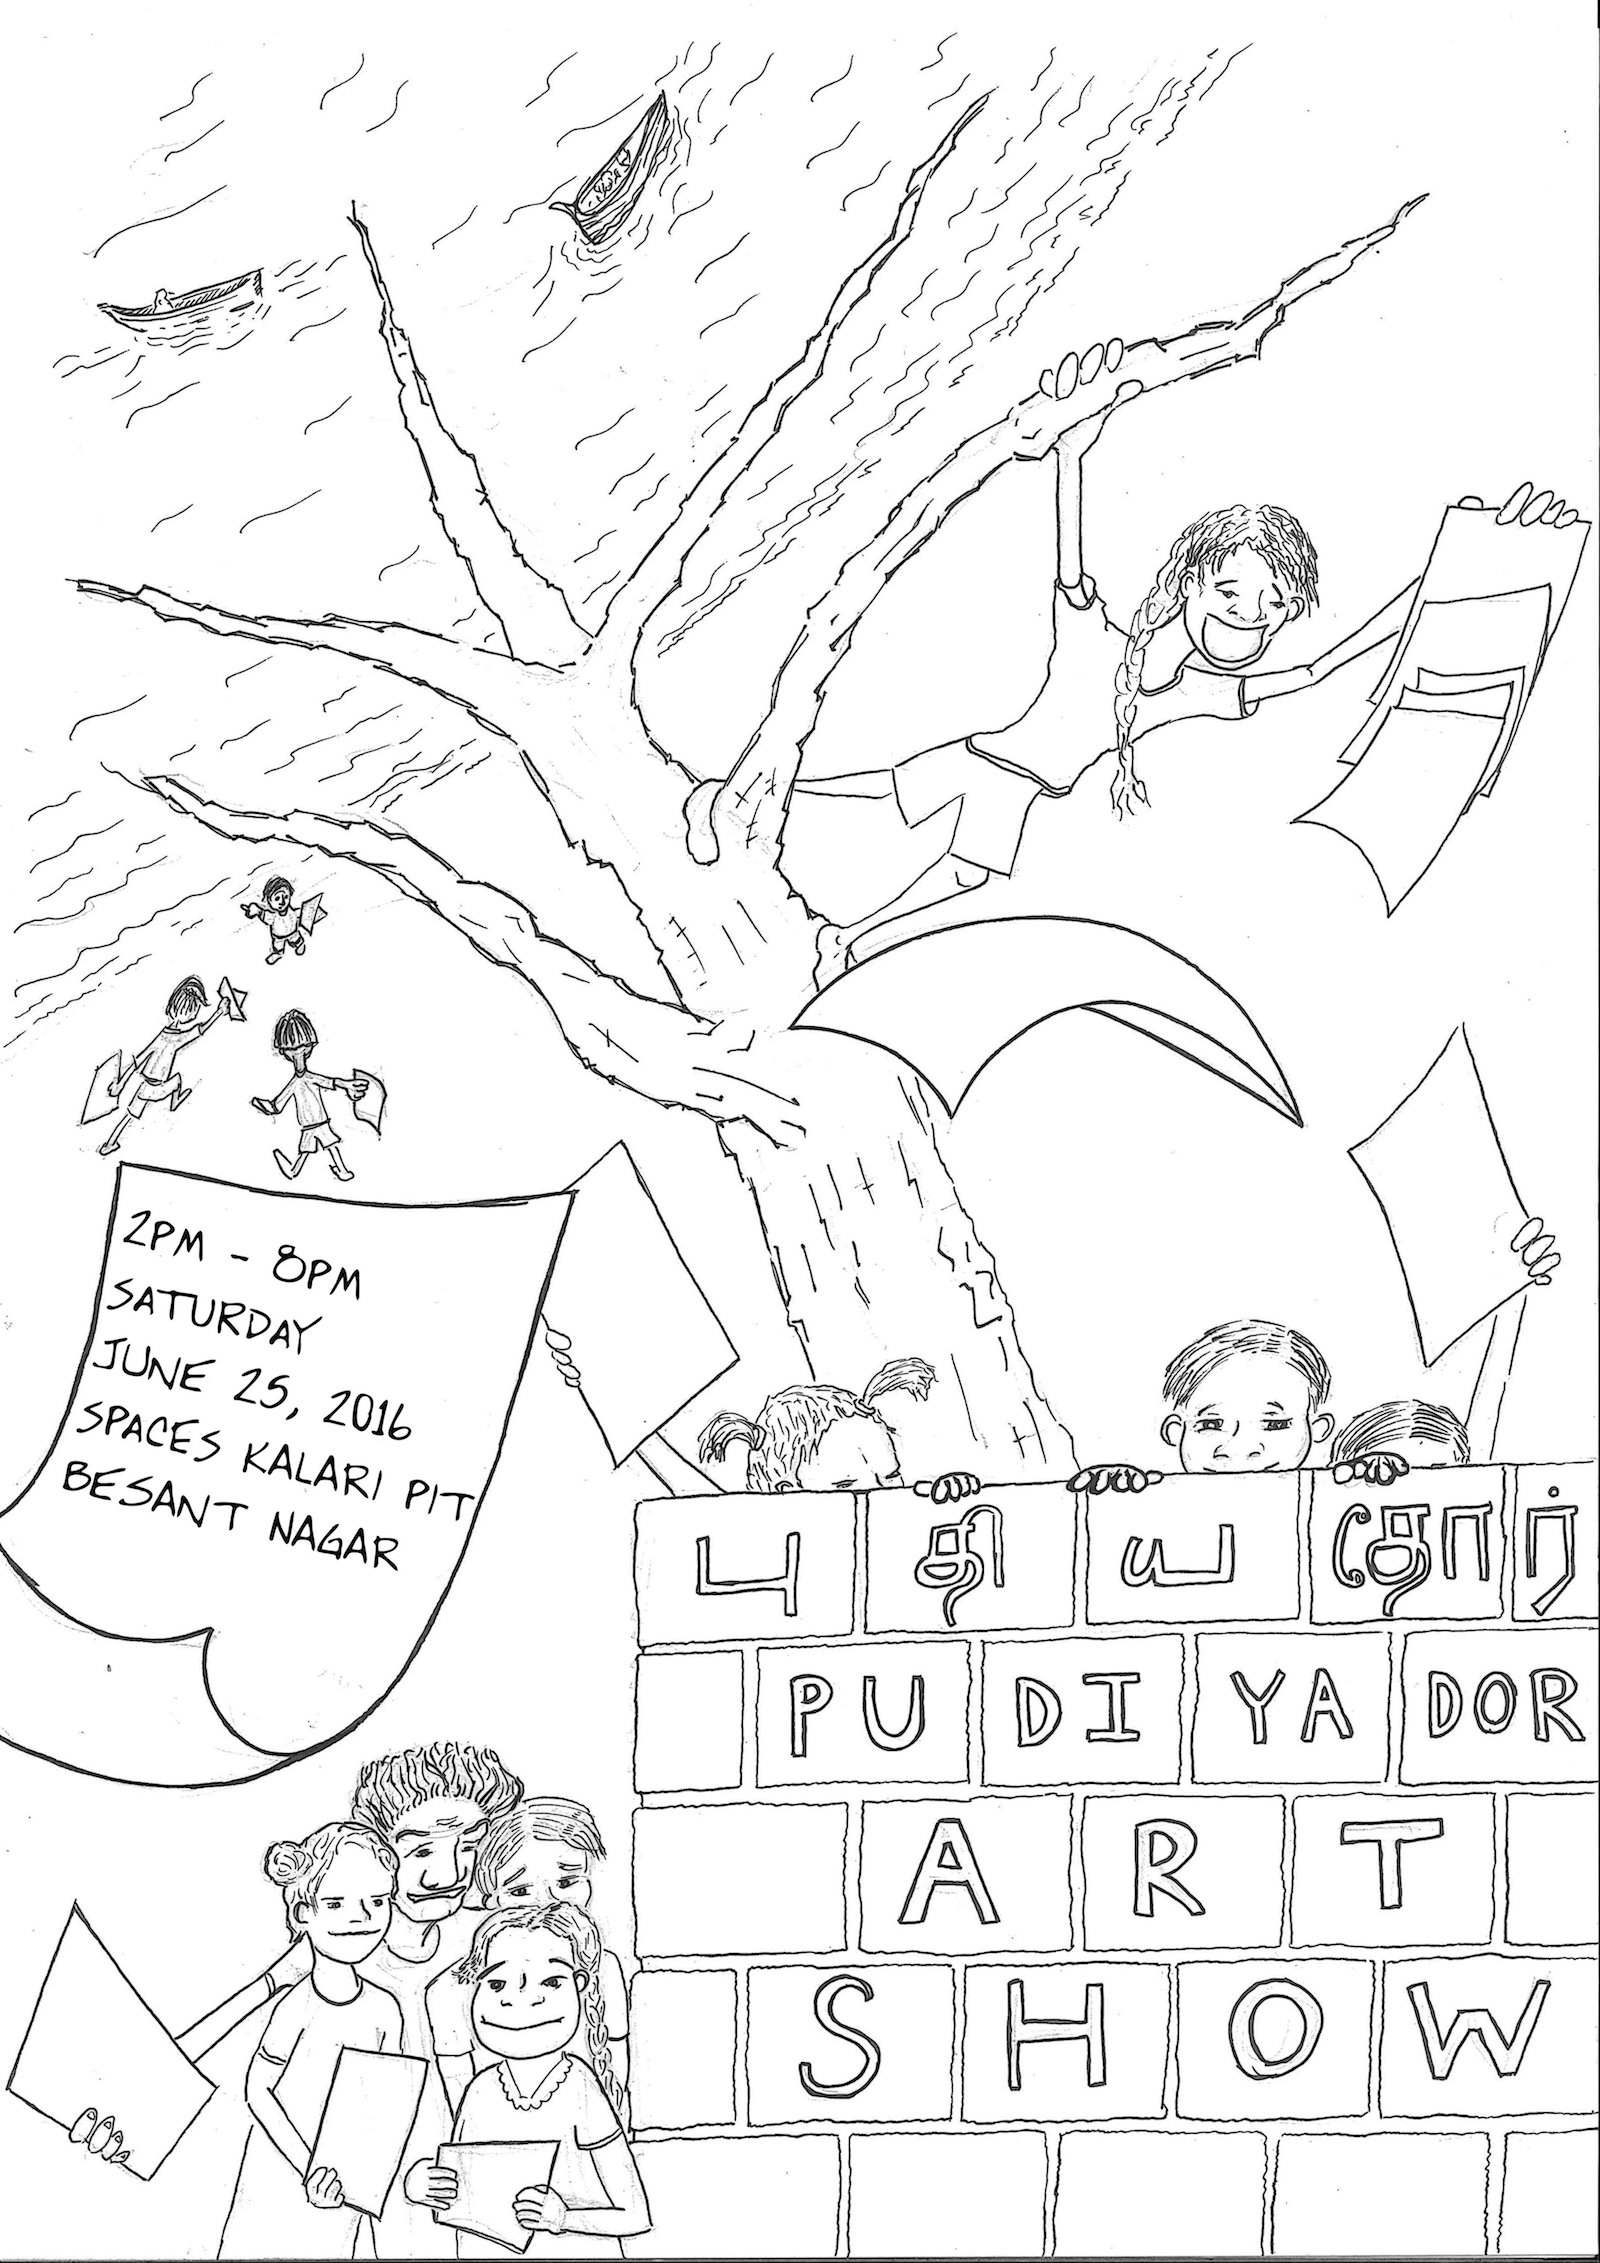 2PM - 8PM
SATURDAY
JUNE 25, 2016
SPACES KALARI PIT
BESANT NAGAR
புதியதோர்
PUDIYADOR
ART
SHOW